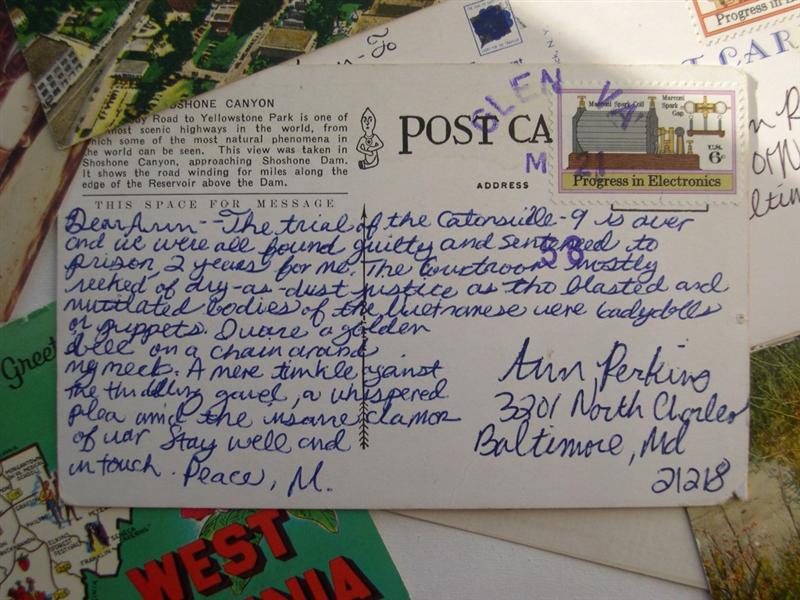 Progress in
CAR
SHOSHONE CANYON
Road to Yellowstone Park is one of
most scenic highways in the world, from
which some of the most natural phenomena in
the world can be seen. This view was taken in
Shoshone Canyon, approaching Shoshone Dam.
It shows the road winding for miles along the
edge of the Reservoir above the Dam.
THIS SPACE FOR MESSAGE
POST CA
ADDRESS
GLEN VA
M 21
58
Marconi Spark Coil
Marconi Spark Gap
U.S. 6c
Progress in Electronics
Dear Ann-- The trial of the Catonsville-9 is over
and we were all found guilty and sentenced to
prison, 2 years for me. The Courtroom mostly
reeked of dry-as-dust justice as tho blasted and
mutilated bodies of the Vietnamese were ladydolls
or puppets. I wore a golden
bell on a chain around
my neck. A mere tinkle against
the thudding gavel, a whispered
plea amid the insane clamor
of war Stay well and
in touch. Peace, M.
Ann Perkins
3201 North Charles
Baltimore, Md
21218
Greet
WEST